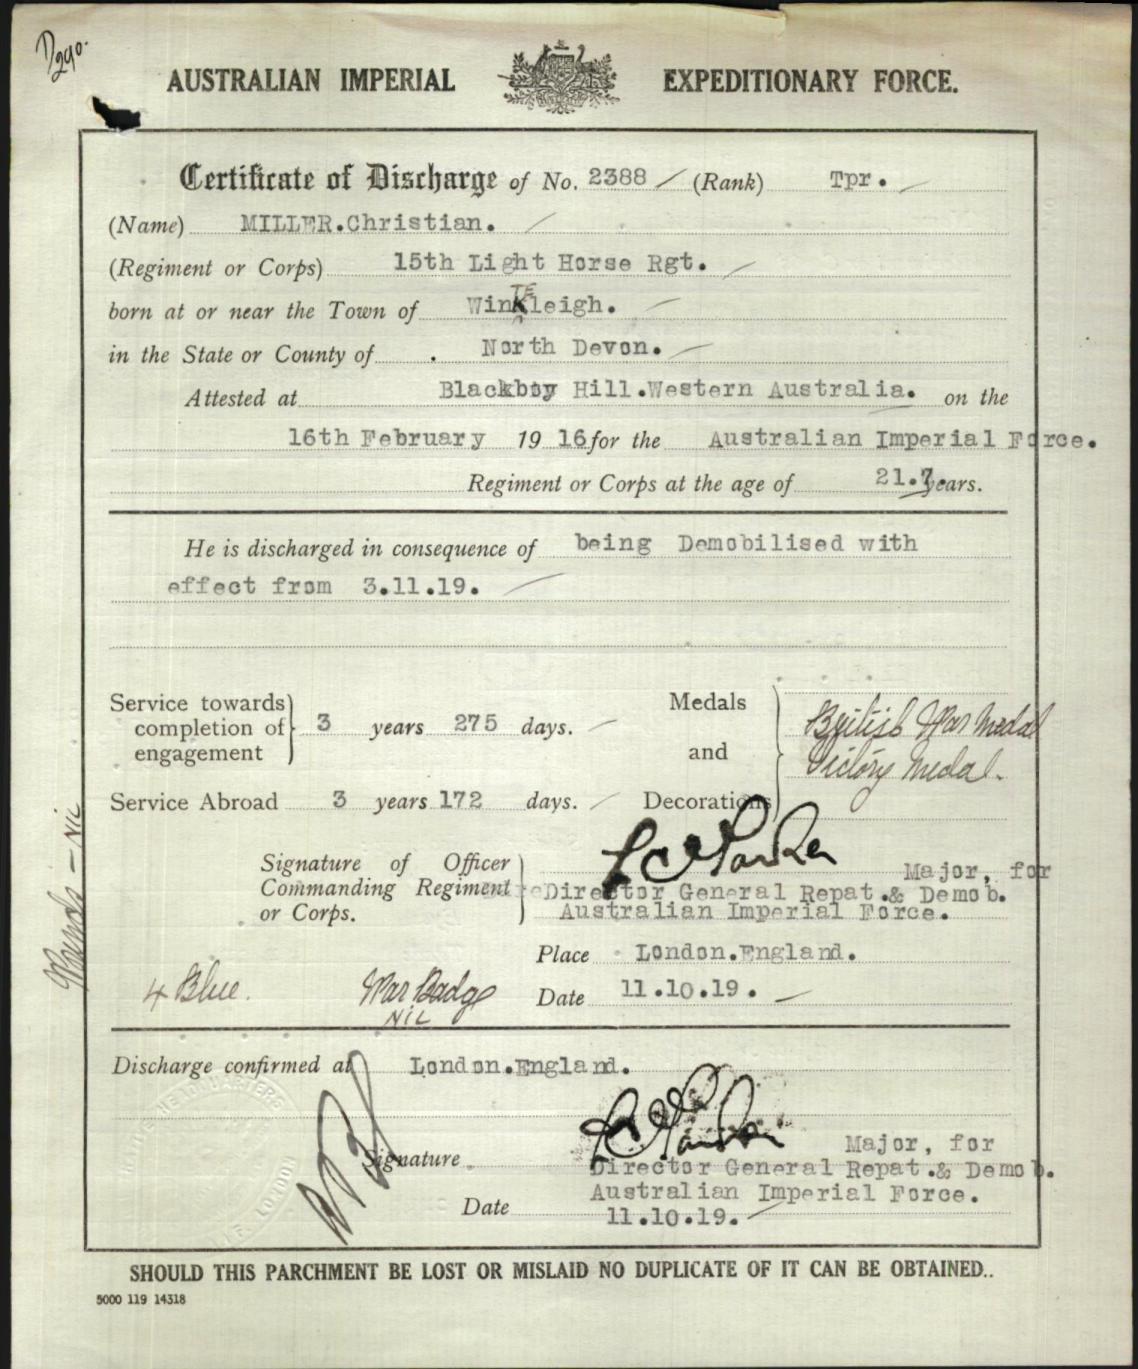 D290.
AUSTRALIAN IMPERIAL EXPEDITIONARY FORCE.
Certificate of Discharge of No. 2388 (Rank) Tpr.
(Name) MILLER.Christian.
(Regiment or Corps) 15th Light Horse Rgt.
TE
born at or near the Town of Winkleigh.
in the State or County of . North Devon.
Attested at Blackboy Hill.Western Australia. on the
16th February 19 16 for the Australian Imperial Force.
Regiment or Corps at the age of 21.7. years.
He is discharged in consequence of being Demobilised with
effect from 3.11.19.
Service towards completion of engagement 3 years 275 days.
Medals and Decorations British War Medal
Victory Medal.
Service Abroad 3 years 172 days.
Signature of Officer Commanding Regiment or Corps.
Major, for
Director General Repat.& Demob.
Australian Imperial Force.
Place London.England.
Date 11.10.19.
Wounds - NIL
4 Blue. War Badge
NIL
Discharge confirmed at London.England.
HEADQUARTERS
A.I.F. LONDON
Signature
Major, for
Director General Repat.& Demob.
Australian Imperial Force.
Date 11.10.19.
SHOULD THIS PARCHMENT BE LOST OR MISLAID NO DUPLICATE OF IT CAN BE OBTAINED..
5000 119 14318